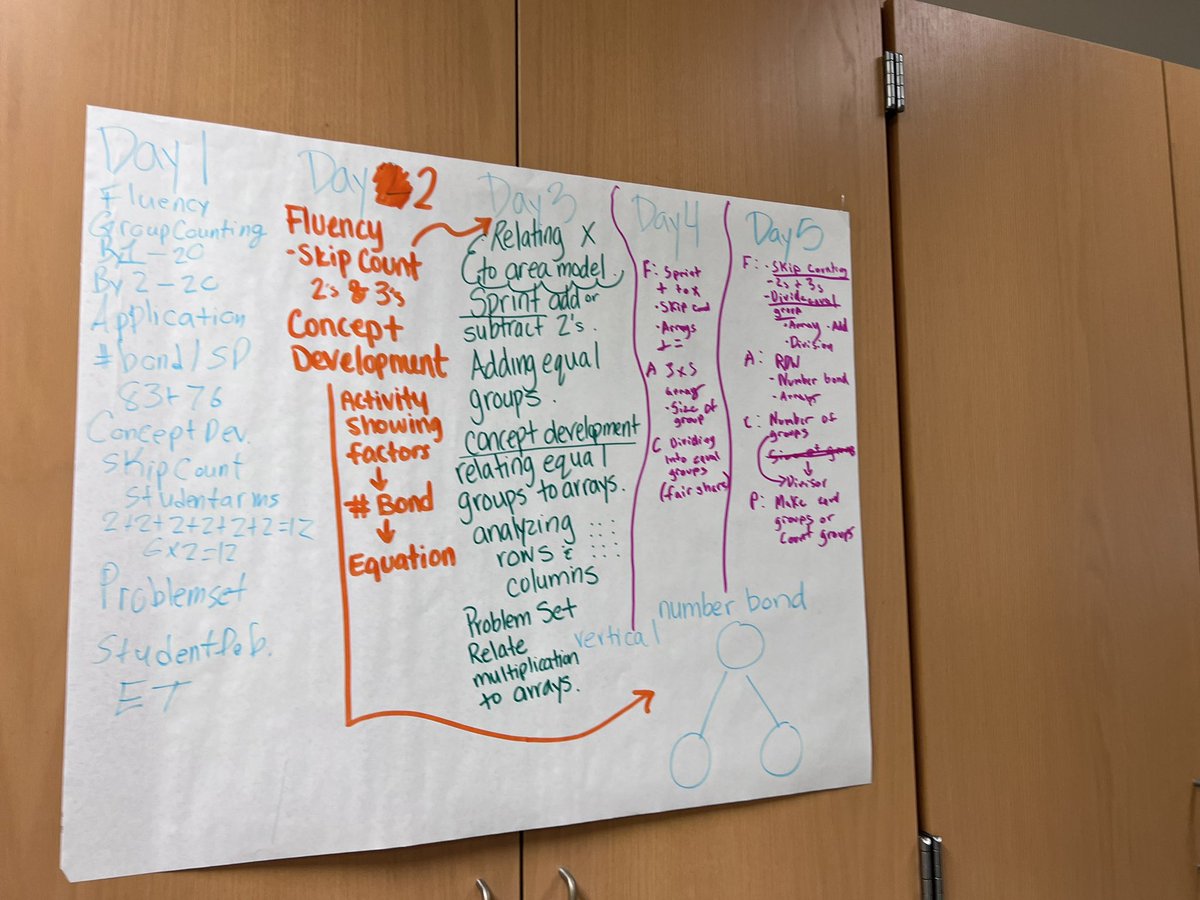 Day 1
Fluency
Group Counting
By 1 - 20
By 2 - 20
Application
# bond / SD
83+76
Concept Dev.
Skip Count
Student arms
2+2+2+2+2+2=12
6x2=12
Problem set
Student Deb.
ET
Day 2
Fluency
- Skip Count
2's & 3's
Concept
Development
Activity
showing
factors
# Bond
Equation
Day 3
Relating X
to area model
Sprint add or
subtract 2's.
Adding equal
groups.
concept development
relating equal
groups to arrays.
analyzing
rows &
columns
Problem Set
Relate
multiplication
to arrays.
vertical
Day 4
F: Sprint
+ to x
• Skip
• Arrays
A 3x5
array
• Size of
group
C Dividing
into equal
groups
(fair share)
Day 5
F: • Skip Counting
- 2s + 3s
- Divide equal
group
• Array • Add
• Division
A: RDW
- Number bond
- Arrays
C: Number of
groups
Size of group
Divisor
P: Make equal
groups or
Count groups
number bond